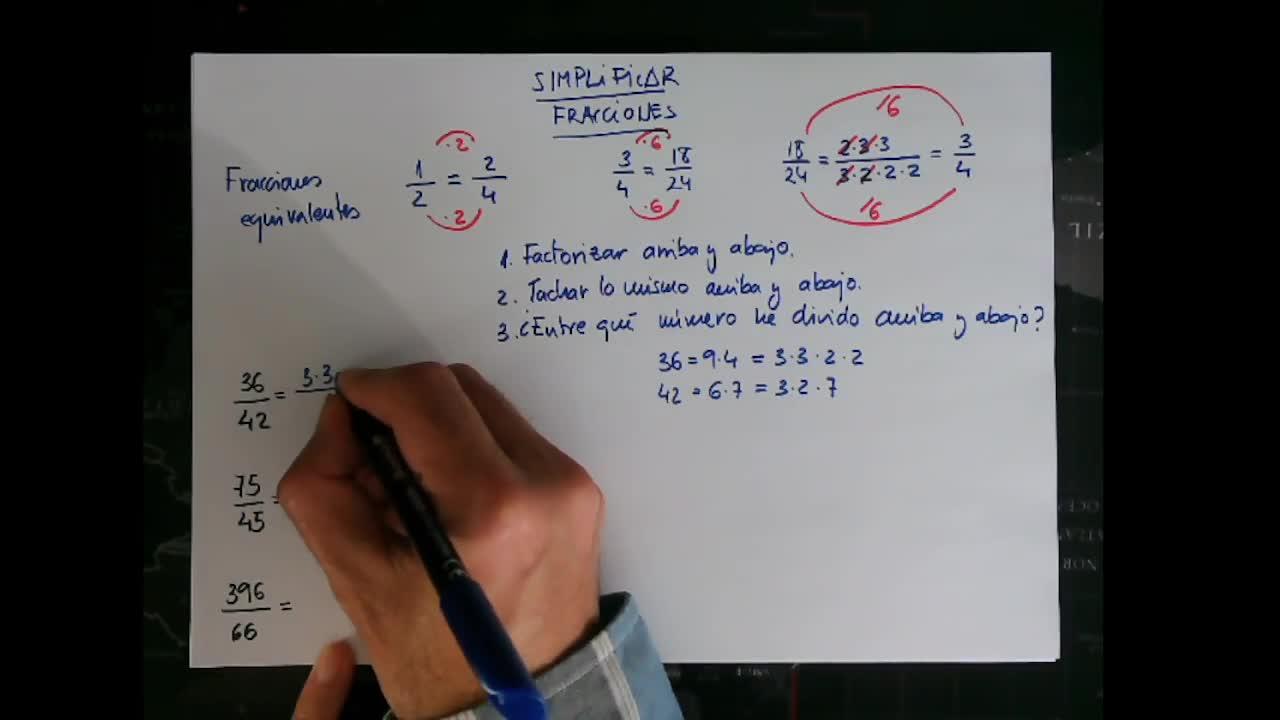 SIMPLIFICAR
FRACCIONES
Fracciones
equivalentes
1/2 = 2/4
·2
·2
3/4 = 18/24
·6
·6
18/24 = 2·3·3/3·2·2·2 = 3/4
/6
/6
1. Factorizar arriba y abajo.
2. Tachar lo mismo arriba y abajo.
3. ¿Entre qué número he divido arriba y abajo?
36 = 9·4 = 3·3·2·2
42 = 6·7 = 3·2·7
36/42 = 3·3
75/45 =
396/66 =